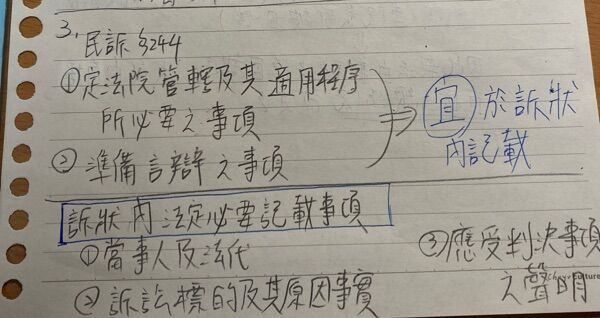 3. 民訴 §244
①定法院管轄及其適用程序
所必要之事項
②準備言辯之事項
⇒ 宜 於訴狀
內記載
訴狀內法定必要記載事項
①當事人及法代
②訴訟標的及其原因事實
③應受判決事項
之聲明